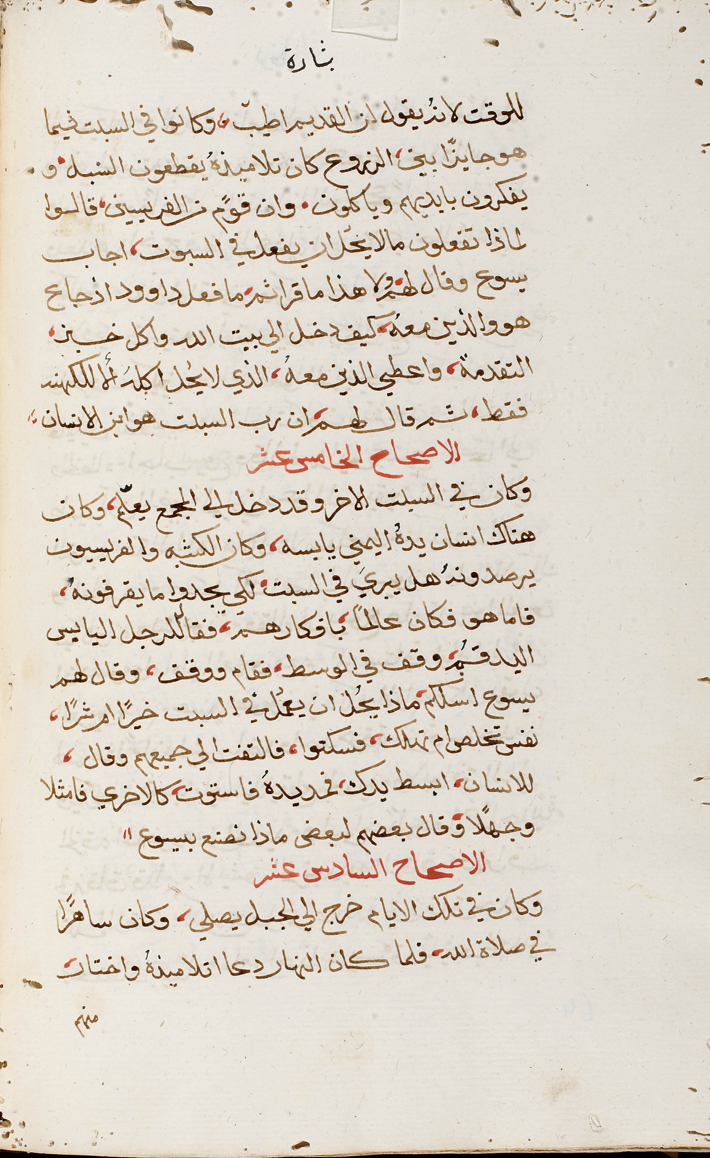 بشارة
للوقت لانهُ يقول ان القديم اطيب، وكانوا في السبت فيما
هو جايزًا بين الزروع كان تلاميذهُ يقطعون السنبل و
يفكرون بايديهم وياكلون. وان قوم من الفريسين، قالوا
لماذا تفعلون ما لا يحّل ان يفعل في السبوت، اجاب
يسوع وقال لهُم ولا هذا ما قراتم، ما فعل داوود اذ جاع
هو والذين معهُ، كيف دخل الي بيت الله واكل خبز،
التقدمة، واعطي الذين معهُ، الذي لا يحُل اكلهَ الا للكهنه
فقط، ثم قال لهم، ان رب السبت هو ابن الانسان
الاصحاح الخامس عشر
وكان في السبت الاخر وقد دخل الي المجمع يعلّم، وكان
هناك انسان يدهُ اليمني يابسه، وكان الكتبه والفريسيون
يرصدونهُ هل يبري في السبت، لكي يجدوا ما يقرفونهُ،
فاما هو فكان عالمًا بافكارهم، فقال للرجل اليابس
اليد قُم، وقف في الوسط، فقام ووقف، وقال لهم
يسوع اسلكم، ماذا يحُل ان يعُمل في السبت خيرًا ام شرًا،
نفس تخلص ام تهلك، فسكتوا، فالتفت الي جميعهم وقال،
للانسان، ابسط يدك، فمد يدهُ فاستوت، كالاخري فامتلا
وجهلًا وقال بعضهم لبعض ماذا نصنع بيسوع
الاصحاح السادس عشر
وكان في تلك الايام خرج الي الجبل يصلي، وكان ساهرًا
في صلاة الله، فلما كان النهار دعا اتلاميذهُ واختار
منهم